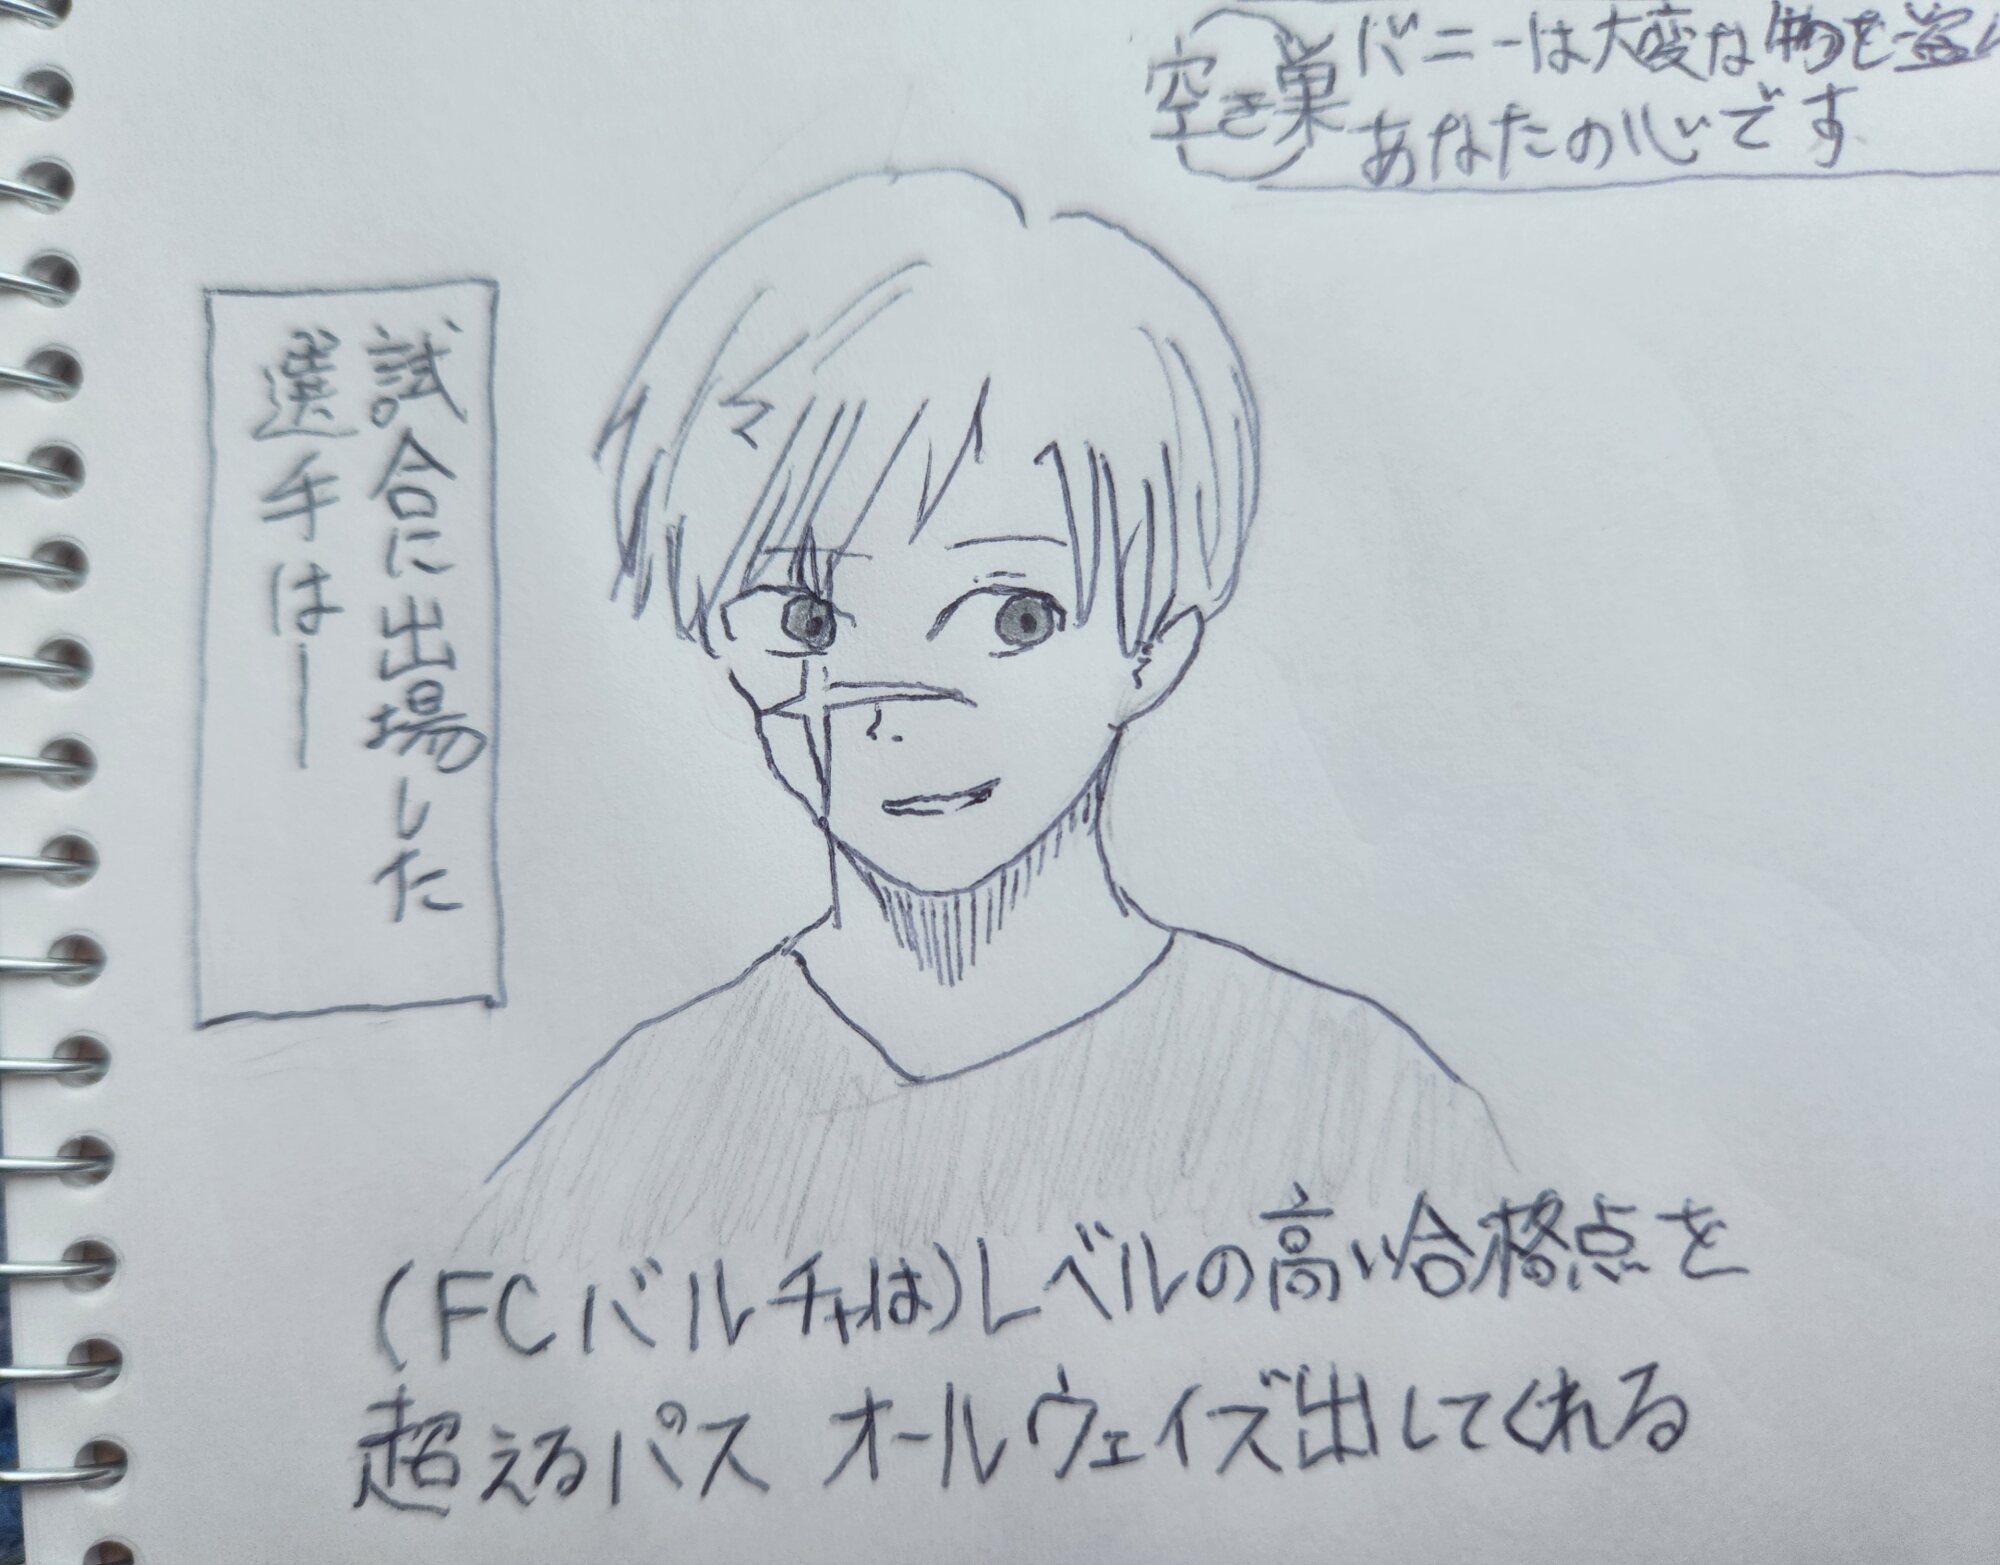 空き巣
バニーは大変な物を盗ん
あなたの心です
試合に出場した
選手は―
(FCバルチャは)レベルの高い合格点を
超えるパス オールウェイズ出してくれる